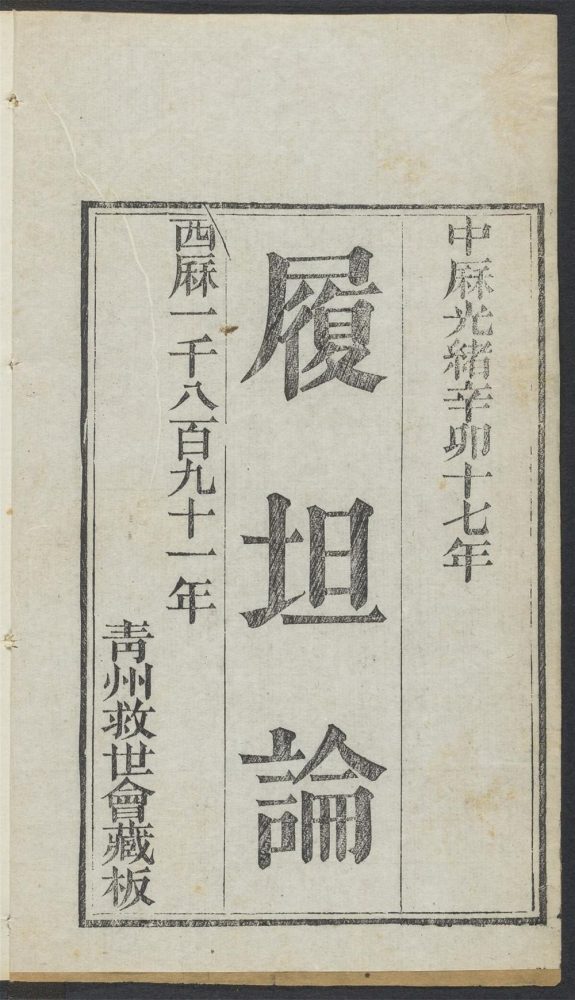 中厤光緒辛卯十七年
履坦論
西厤一千八百九十一年
青州救世會藏板